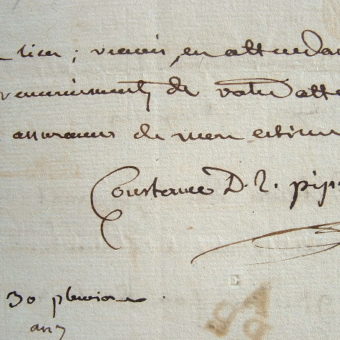 lieu; recevés, en attendan
remerciments de votre atte
assurances de mon estime
Constance D. T. pip
30 pluviose
an 7